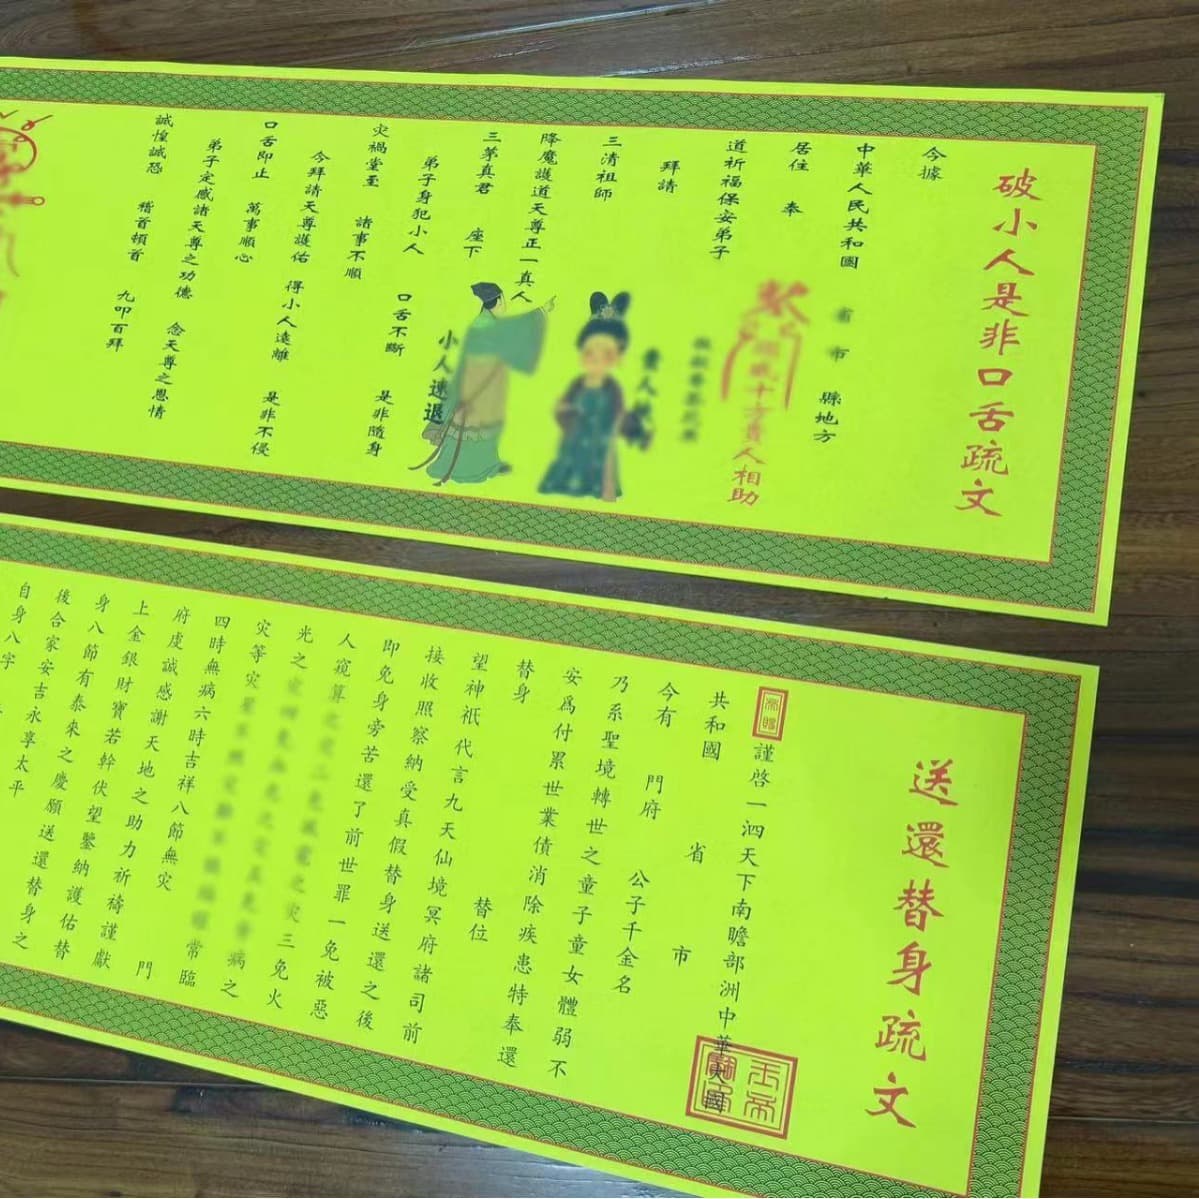 破小人是非口舌疏文
今據
中華人民共和國 省 市 縣地方
居住 奉
道祈福保安弟子
十方貴人相助
拜請
三清祖師
降魔護道天尊正一真人
三茅真君 座下
小人速退
弟子身犯小人 口舌不斷 是非隨身
災禍堂至 諸事不順
今拜請天尊護佑 得小人遠離 是非不侵
口舌即止 萬事順心
弟子定感諸天尊之功德 念天尊之恩情
誠惶誠恐 稽首頓首 九叩百拜
送還替身疏文
謹啓一泗天下南瞻部洲中華大國
共和國 省 市
今有 門府 公子千金名
乃系聖境轉世之童子童女體弱不
安爲付累世業債消除疾患特奉還
替身 替位
望神祇代言九天仙境冥府諸司前
接收照察納受真假替身送還之後
即免身旁苦還了前世罪一免被惡
人窺算之災二免
光之災 三免火
災等災 病之
四時無病六時吉祥八節無災 常臨
府虔誠感謝天地之助力祈禱謹獻 門
上金銀財寶若幹伏望鑒納護佑替
身八節有泰來之慶願送還替身之
後合家安吉永享太平
自身八字